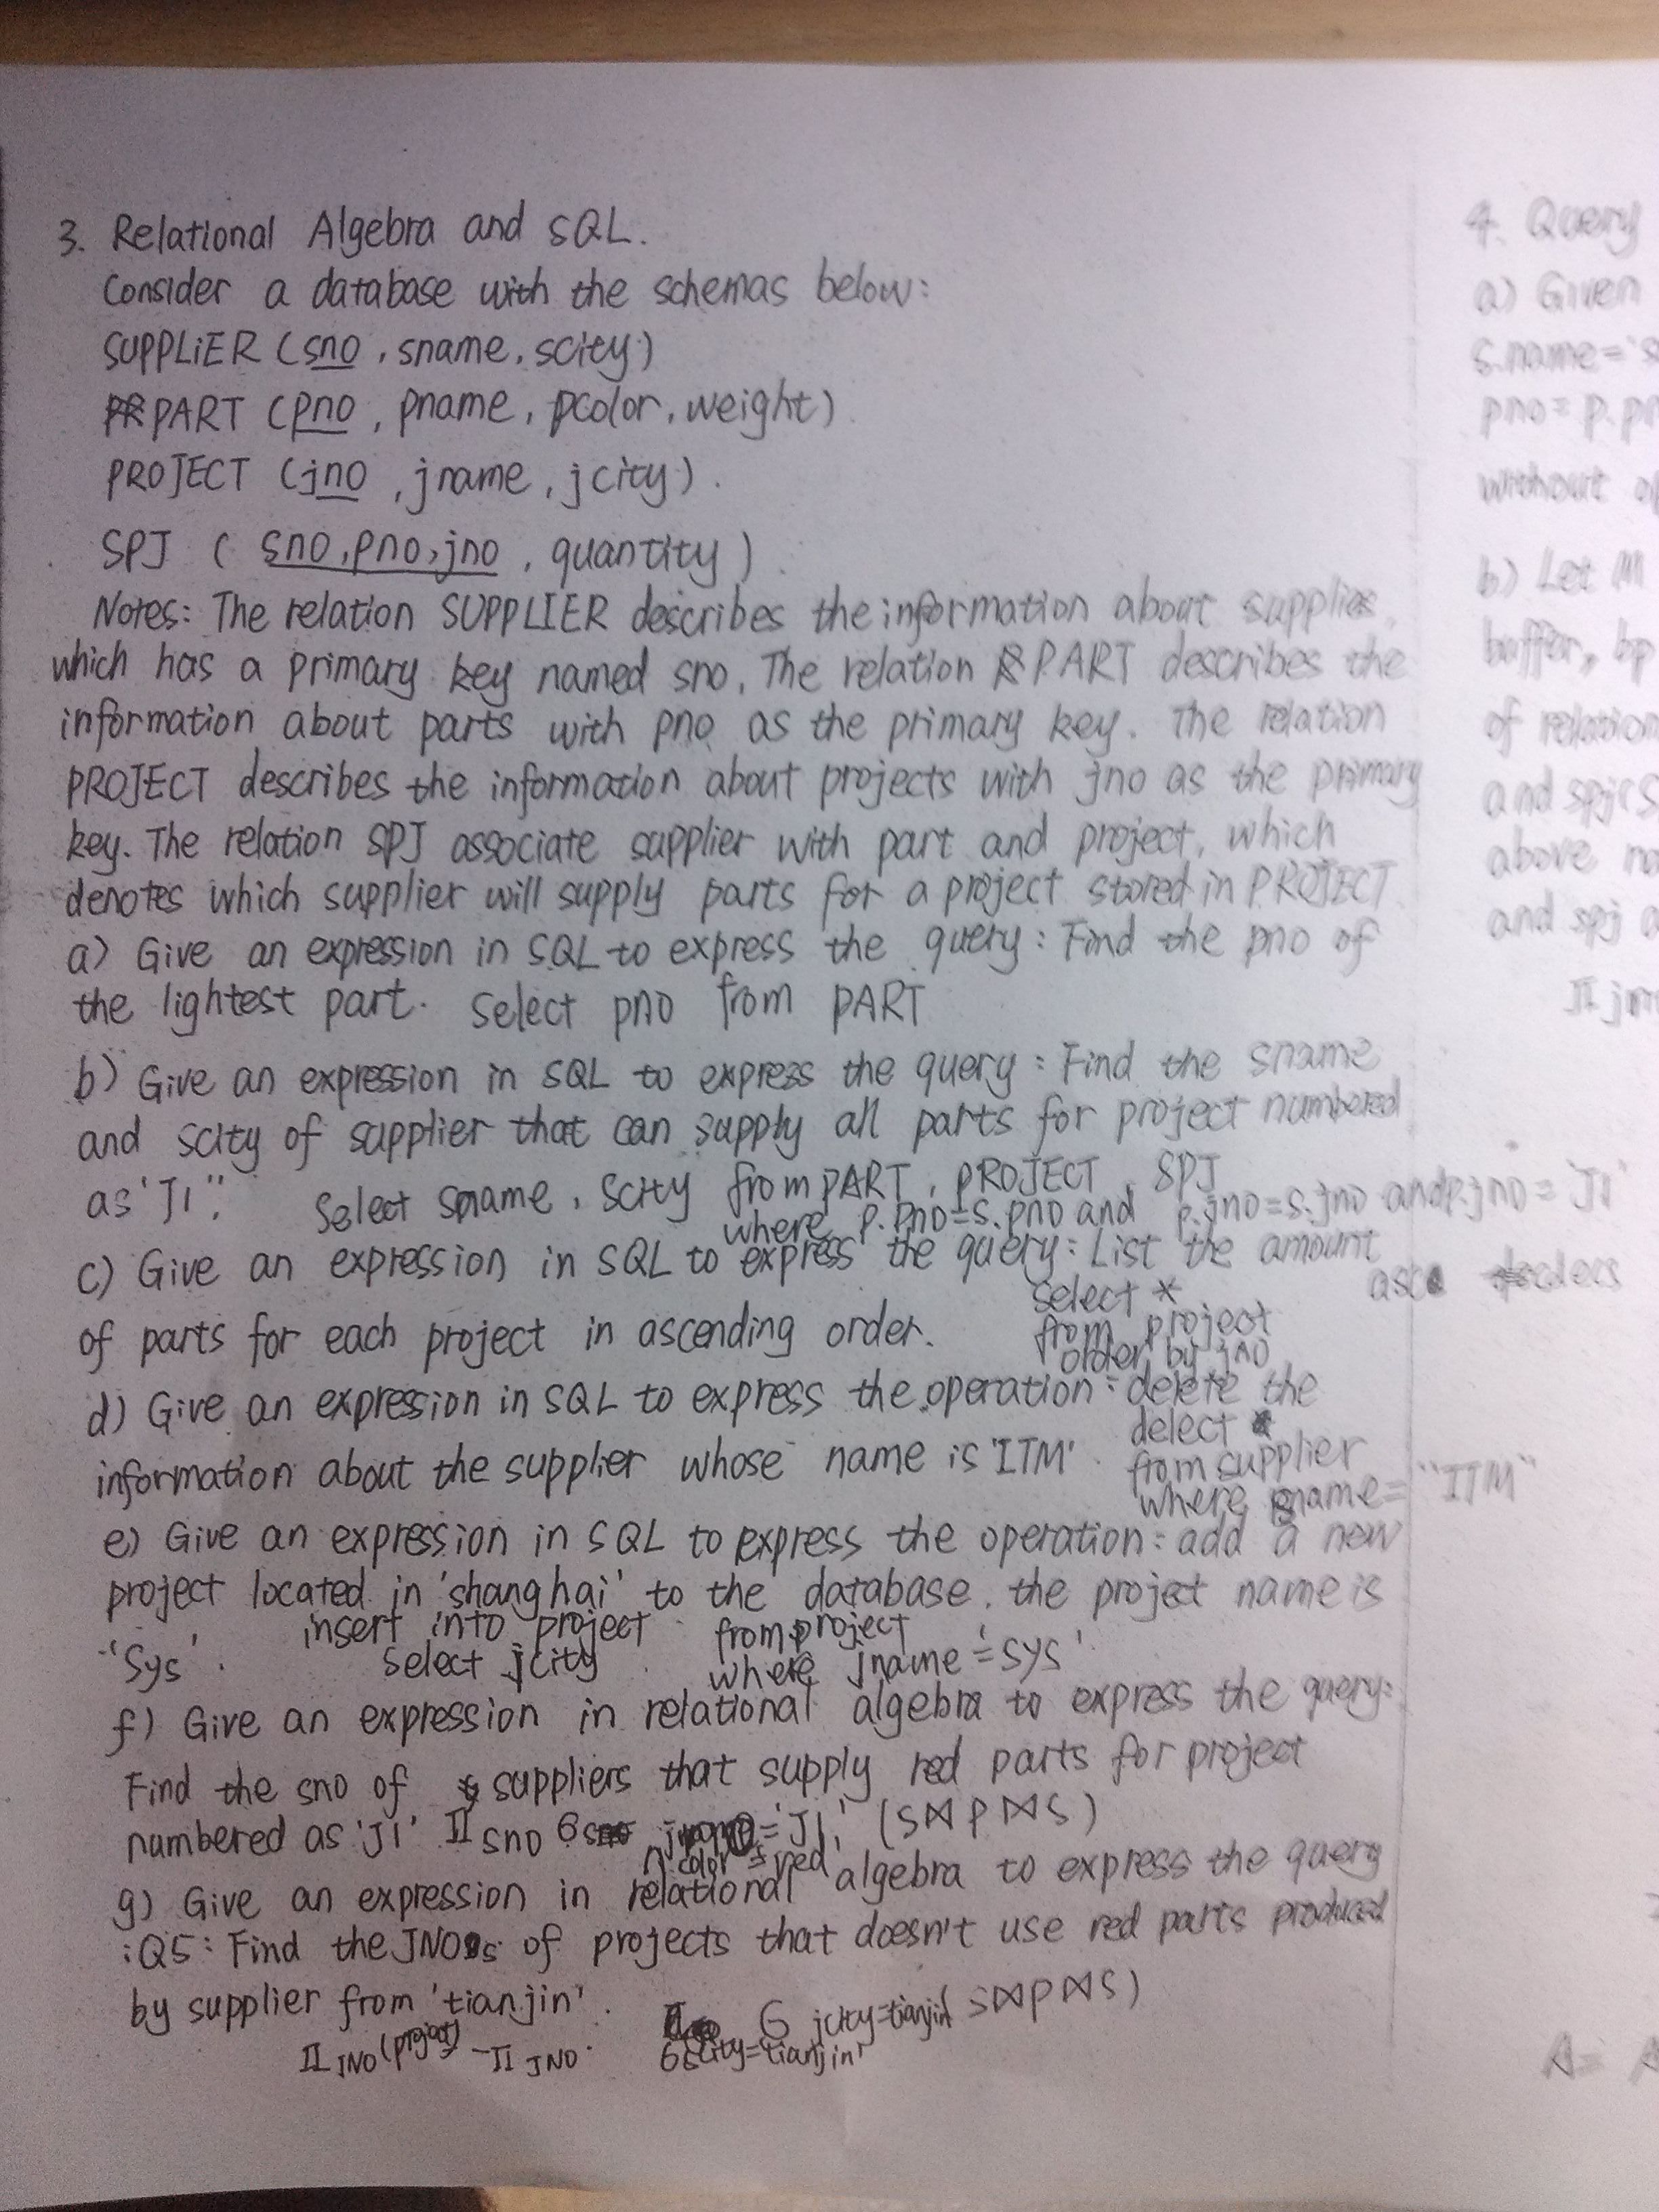 3. Relational Algebra and SQL.
Consider a database with the schemas below:
SUPPLiER (sno, sname, scity)
PART (pno, pname, pcolor, weight)
PROJECT (jno, jname, jcity).
SPJ (sno, pno, jno, quantity)
Notes: The relation SUPPLIER describes the information about supplies,
which has a primary key named sno, The relation PART describes the
information about parts with pno as the primary key. The relation
PROJECT describes the information about projects with jno as the primary
key. The relation SPJ associate supplier with part and project, which
denotes which supplier will supply parts for a project stored in PROJECT
a) Give an expression in SQL to express the query: Find the pno of
the lightest part. Select pno from PART
b) Give an expression in SQL to express the query: Find the sname
and scity of supplier that can supply all parts for project numbered
as 'J1". Select sname, scity from PART, PROJECT, SPJ
where p.pno=s.pno and p.jno=s.jno and p.jno='J1'
c) Give an expression in SQL to express the query: List the amount
of parts for each project in ascending order.
select *
from project
order by jno
d) Give an expression in SQL to express the operation: delete the
information about the supplier whose name is 'ITM'.
delect
from supplier
where sname="ITM"
e) Give an expression in SQL to express the operation: add a new
project located in 'shanghai' to the database. the project name is
'Sys'.
insert into project
select jcity
from project
where jname='sys'
f) Give an expression in relational algebra to express the query:
Find the sno of suppliers that supply red parts for project
numbered as 'J1' Π sno σ ='J1' (S⋈P⋈S)
color=red
g) Give an expression in relational algebra to express the query
Q5: Find the JNOs of projects that doesn't use red parts produced
by supplier from 'tianjin'.
σ jcity=tianjin (S⋈P⋈S)
Π JNO (project) - Π JNO σ scity='tianjin'
4. Query
a) Given
s.name='s
pno=p.p
without
b) Let M
buffer, bp
of relation
and spj(s
above
and spj